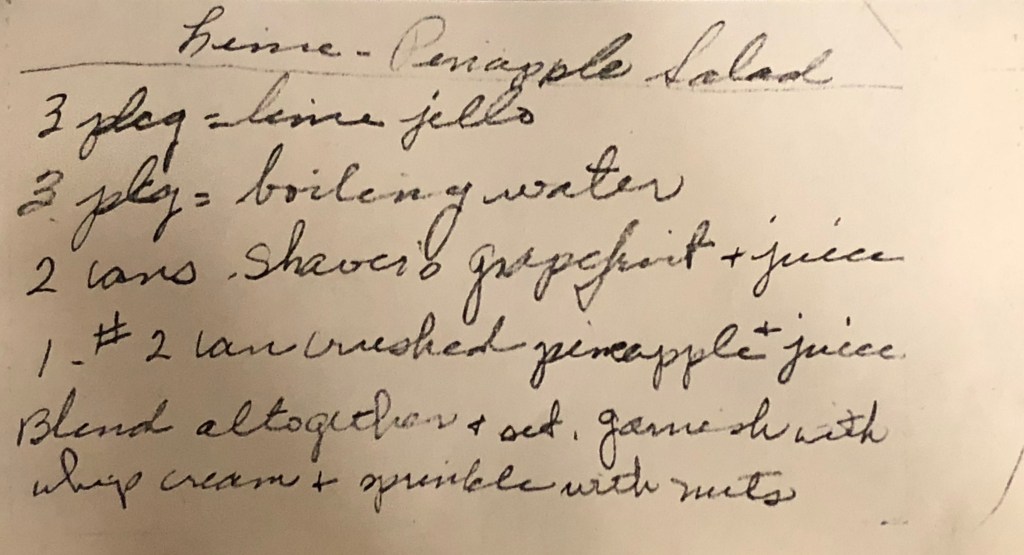 Lime - Pineapple Salad
3 pkg = lime jello
3 pkg = boiling water
2 cans Shaver's grapefruit + juice
1 - # 2 can crushed pineapple + juice
Blend altogether + set. garnish with
whip cream + sprinkle with nuts